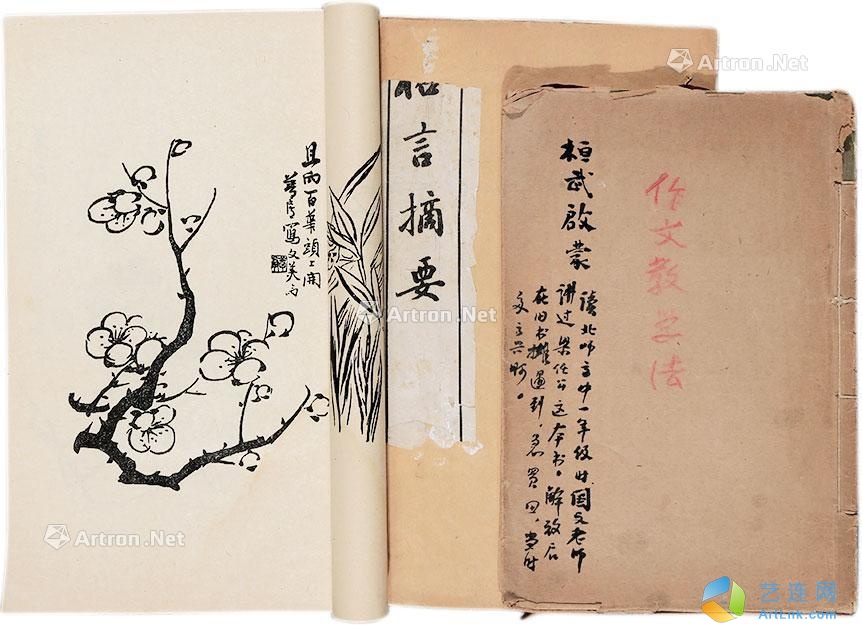 且向百華頭上開
言摘要
桓武啟蒙
讀北师高中一年级时国文老师
讲过梁任公这本书。解放后
在旧书摊遇到，急买回，当时
作文教学法
Artron.Net
Artron.Net
Artron.Net
Artron.Net
艺连网
ArtLnk.com